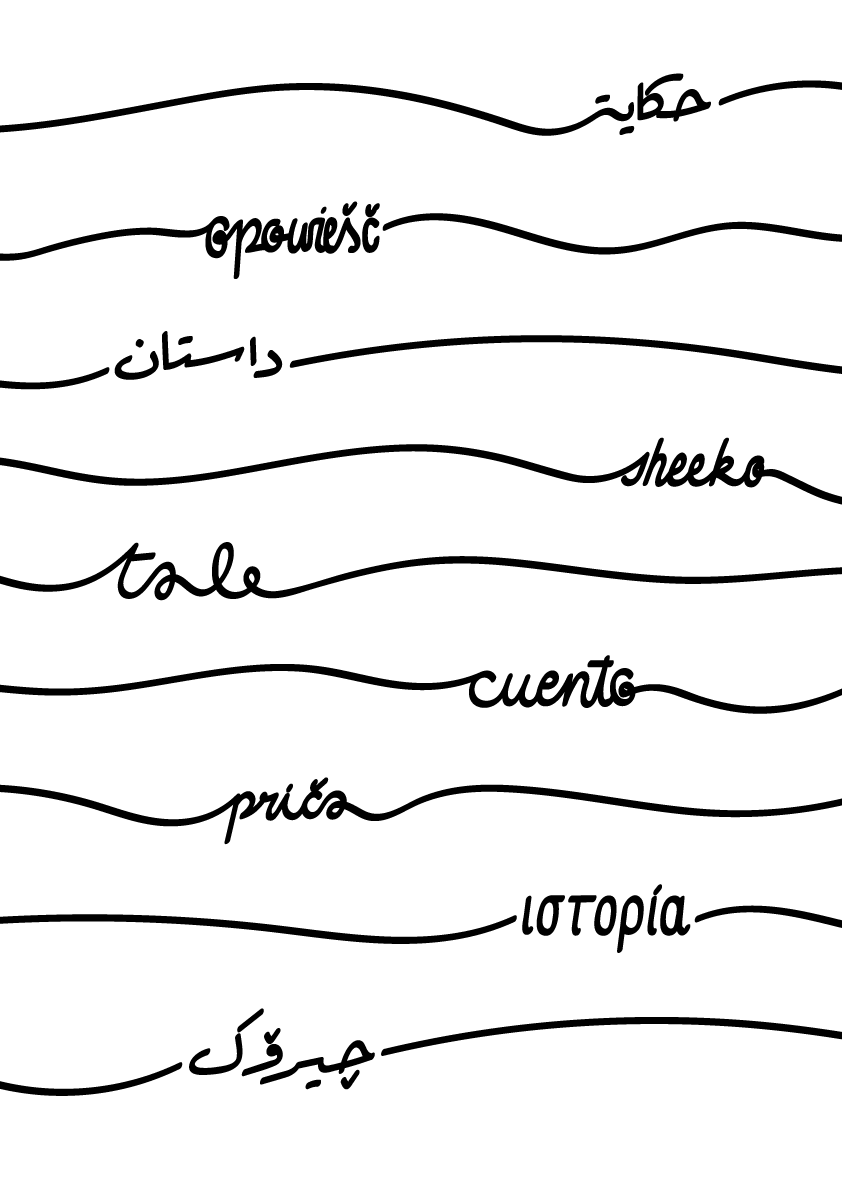 حكاية
opowiešč
داستان
sheeko
tale
cuento
priča
ιστορία
چیرۆک